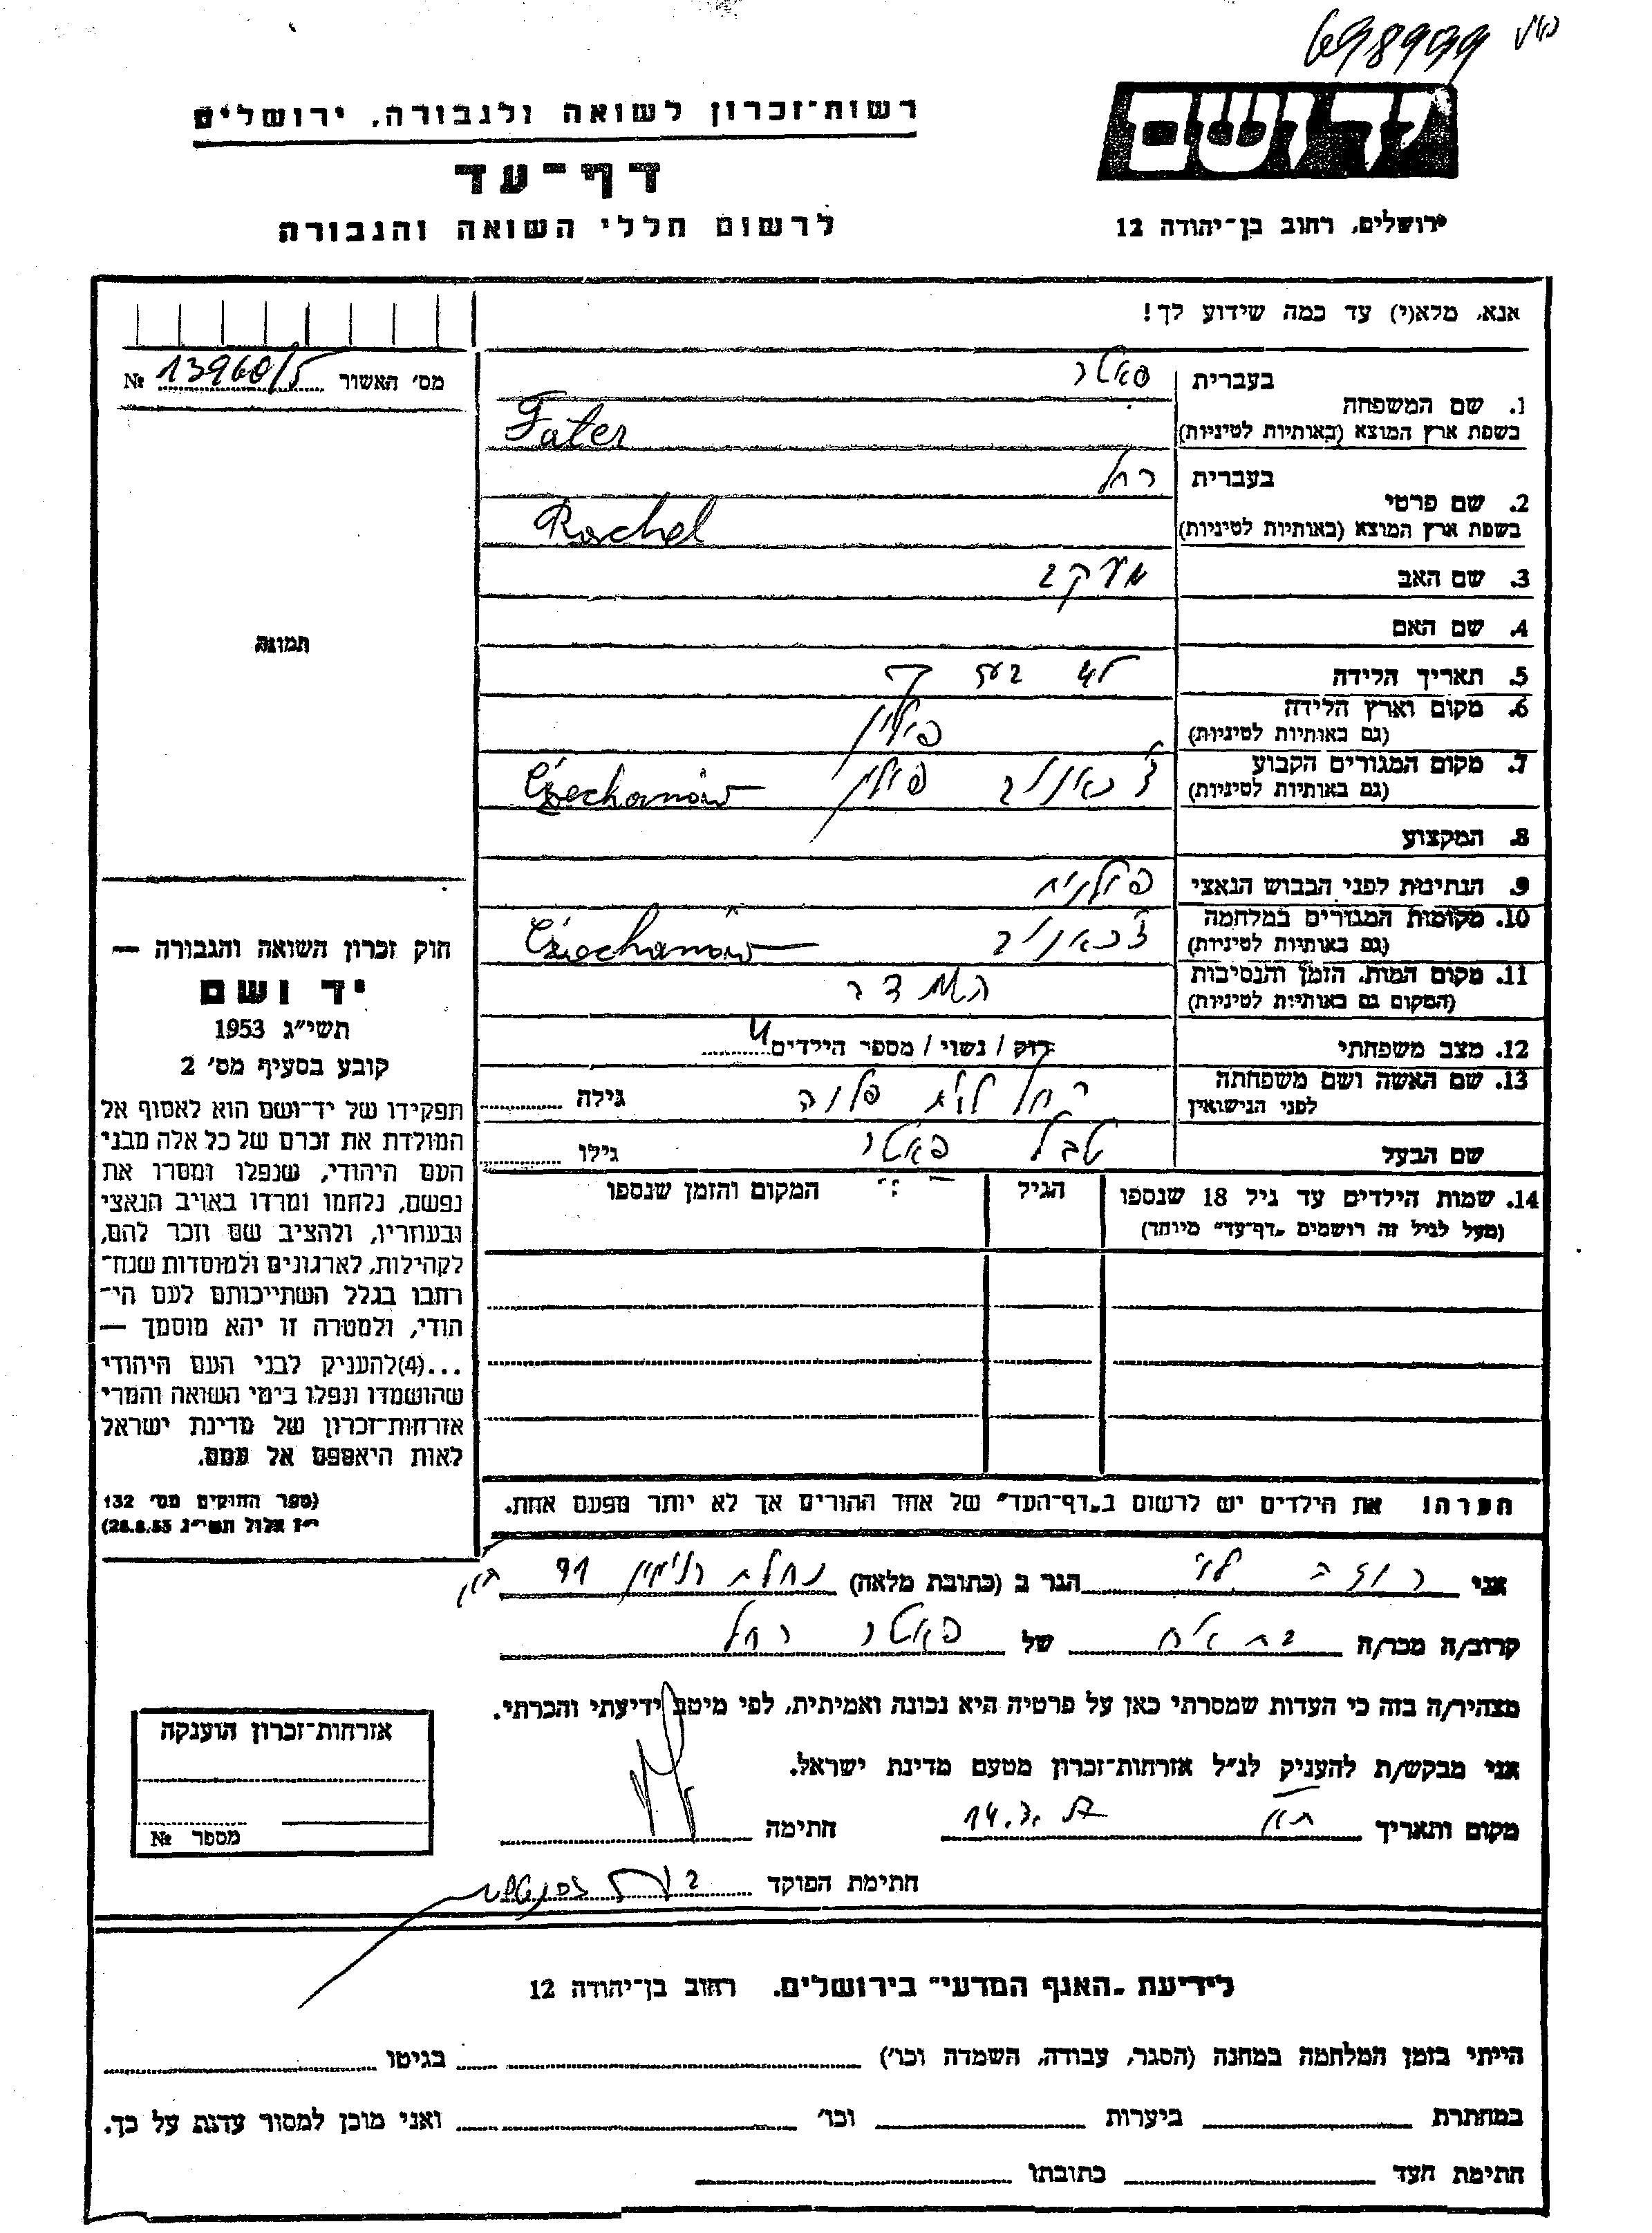 698999
יד ושם
רשות־זכרון לשואה ולגבורה, ירושלים
דף־עד
לרשום חללי השואה והגבורה
ירושלים, רחוב בן־יהודה 12
אנא, מלא(י) עד כמה שידוע לך!
מס׳ האשור 13960/5 №
תמונה
1. שם המשפחה
בעברית פאטר
בשפת ארץ המוצא (באותיות לטיניות) Fater
2. שם פרטי
בעברית רחל
בשפת ארץ המוצא (באותיות לטיניות) Rachel
3. שם האב יעקב
4. שם האם
5. תאריך הלידה
6. מקום וארץ הלידה
(גם באותיות לטיניות) פולין
7. מקום המגורים הקבוע
(גם באותיות לטיניות) צ׳כאנוב פולין Czechanów
8. המקצוע
9. הנתינות לפני הכבוש הנאצי פולנית
10. מקומות המגורים במלחמה
(גם באותיות לטיניות) צ׳כאנוב Czechanów
11. מקום המות, הזמן והנסיבות
(המקום גם באותיות לטיניות)
12. מצב משפחתי רוק / נשוי / מספר הילדים 4
13. שם האשה ושם משפחתה
לפני הנישואין רחל לבית גילה
שם הבעל פאטר גילו
14. שמות הילדים עד גיל 18 שנספו
(מעל לגיל זה רושמים „דף־עד״ מיוחד)
הגיל
המקום והזמן שנספו
הערה! את הילדים יש לרשום ב„דף־העד״ של אחד ההורים אך לא יותר מפעם אחת.
חוק זכרון השואה והגבורה —
יד ושם
תשי״ג 1953
קובע בסעיף מס׳ 2
תפקידו של יד־ושם הוא לאסוף אל
המולדת את זכרם של כל אלה מבני
העם היהודי, שנפלו ומסרו את
נפשם, נלחמו ומרדו באויב הנאצי
ובעוזריו, ולהציב שם וזכר להם,
לקהילות, לארגונים ולמוסדות שנח־
רבו בגלל השתייכותם לעם הי־
הודי, ולמטרה זו יהא מוסמך —
...(4)להעניק לבני העם היהודי
שהושמדו ונפלו בימי השואה והמרי
אזרחות־זכרון של מדינת ישראל
לאות היאספם אל עמם.
(ספר החוקים מס׳ 132
י״ז אלול תשי״ג 28.8.53)
אני הגר ב (כתובת מלאה) נחלת בנימין
קרוב/ה מכר/ה בת אח של פאטר רחל
מצהיר/ה בזה כי העדות שמסרתי כאן על פרטיה היא נכונה ואמיתית, לפי מיטב ידיעתי והכרתי.
אני מבקש/ת להעניק לנ״ל אזרחות־זכרון מטעם מדינת ישראל.
מקום ותאריך ת״א חתימה
חתימת הפוקד
אזרחות־זכרון הוענקה
מספר №
לידיעת „האגף המדעי״ בירושלים. רחוב בן־יהודה 12
הייתי בזמן המלחמה במחנה (הסגר, עבודה, השמדה וכו׳) בגיטו
במחתרת ביערות וכו׳ ואני מוכן למסור עדות על כך.
חתימת העד כתובתו